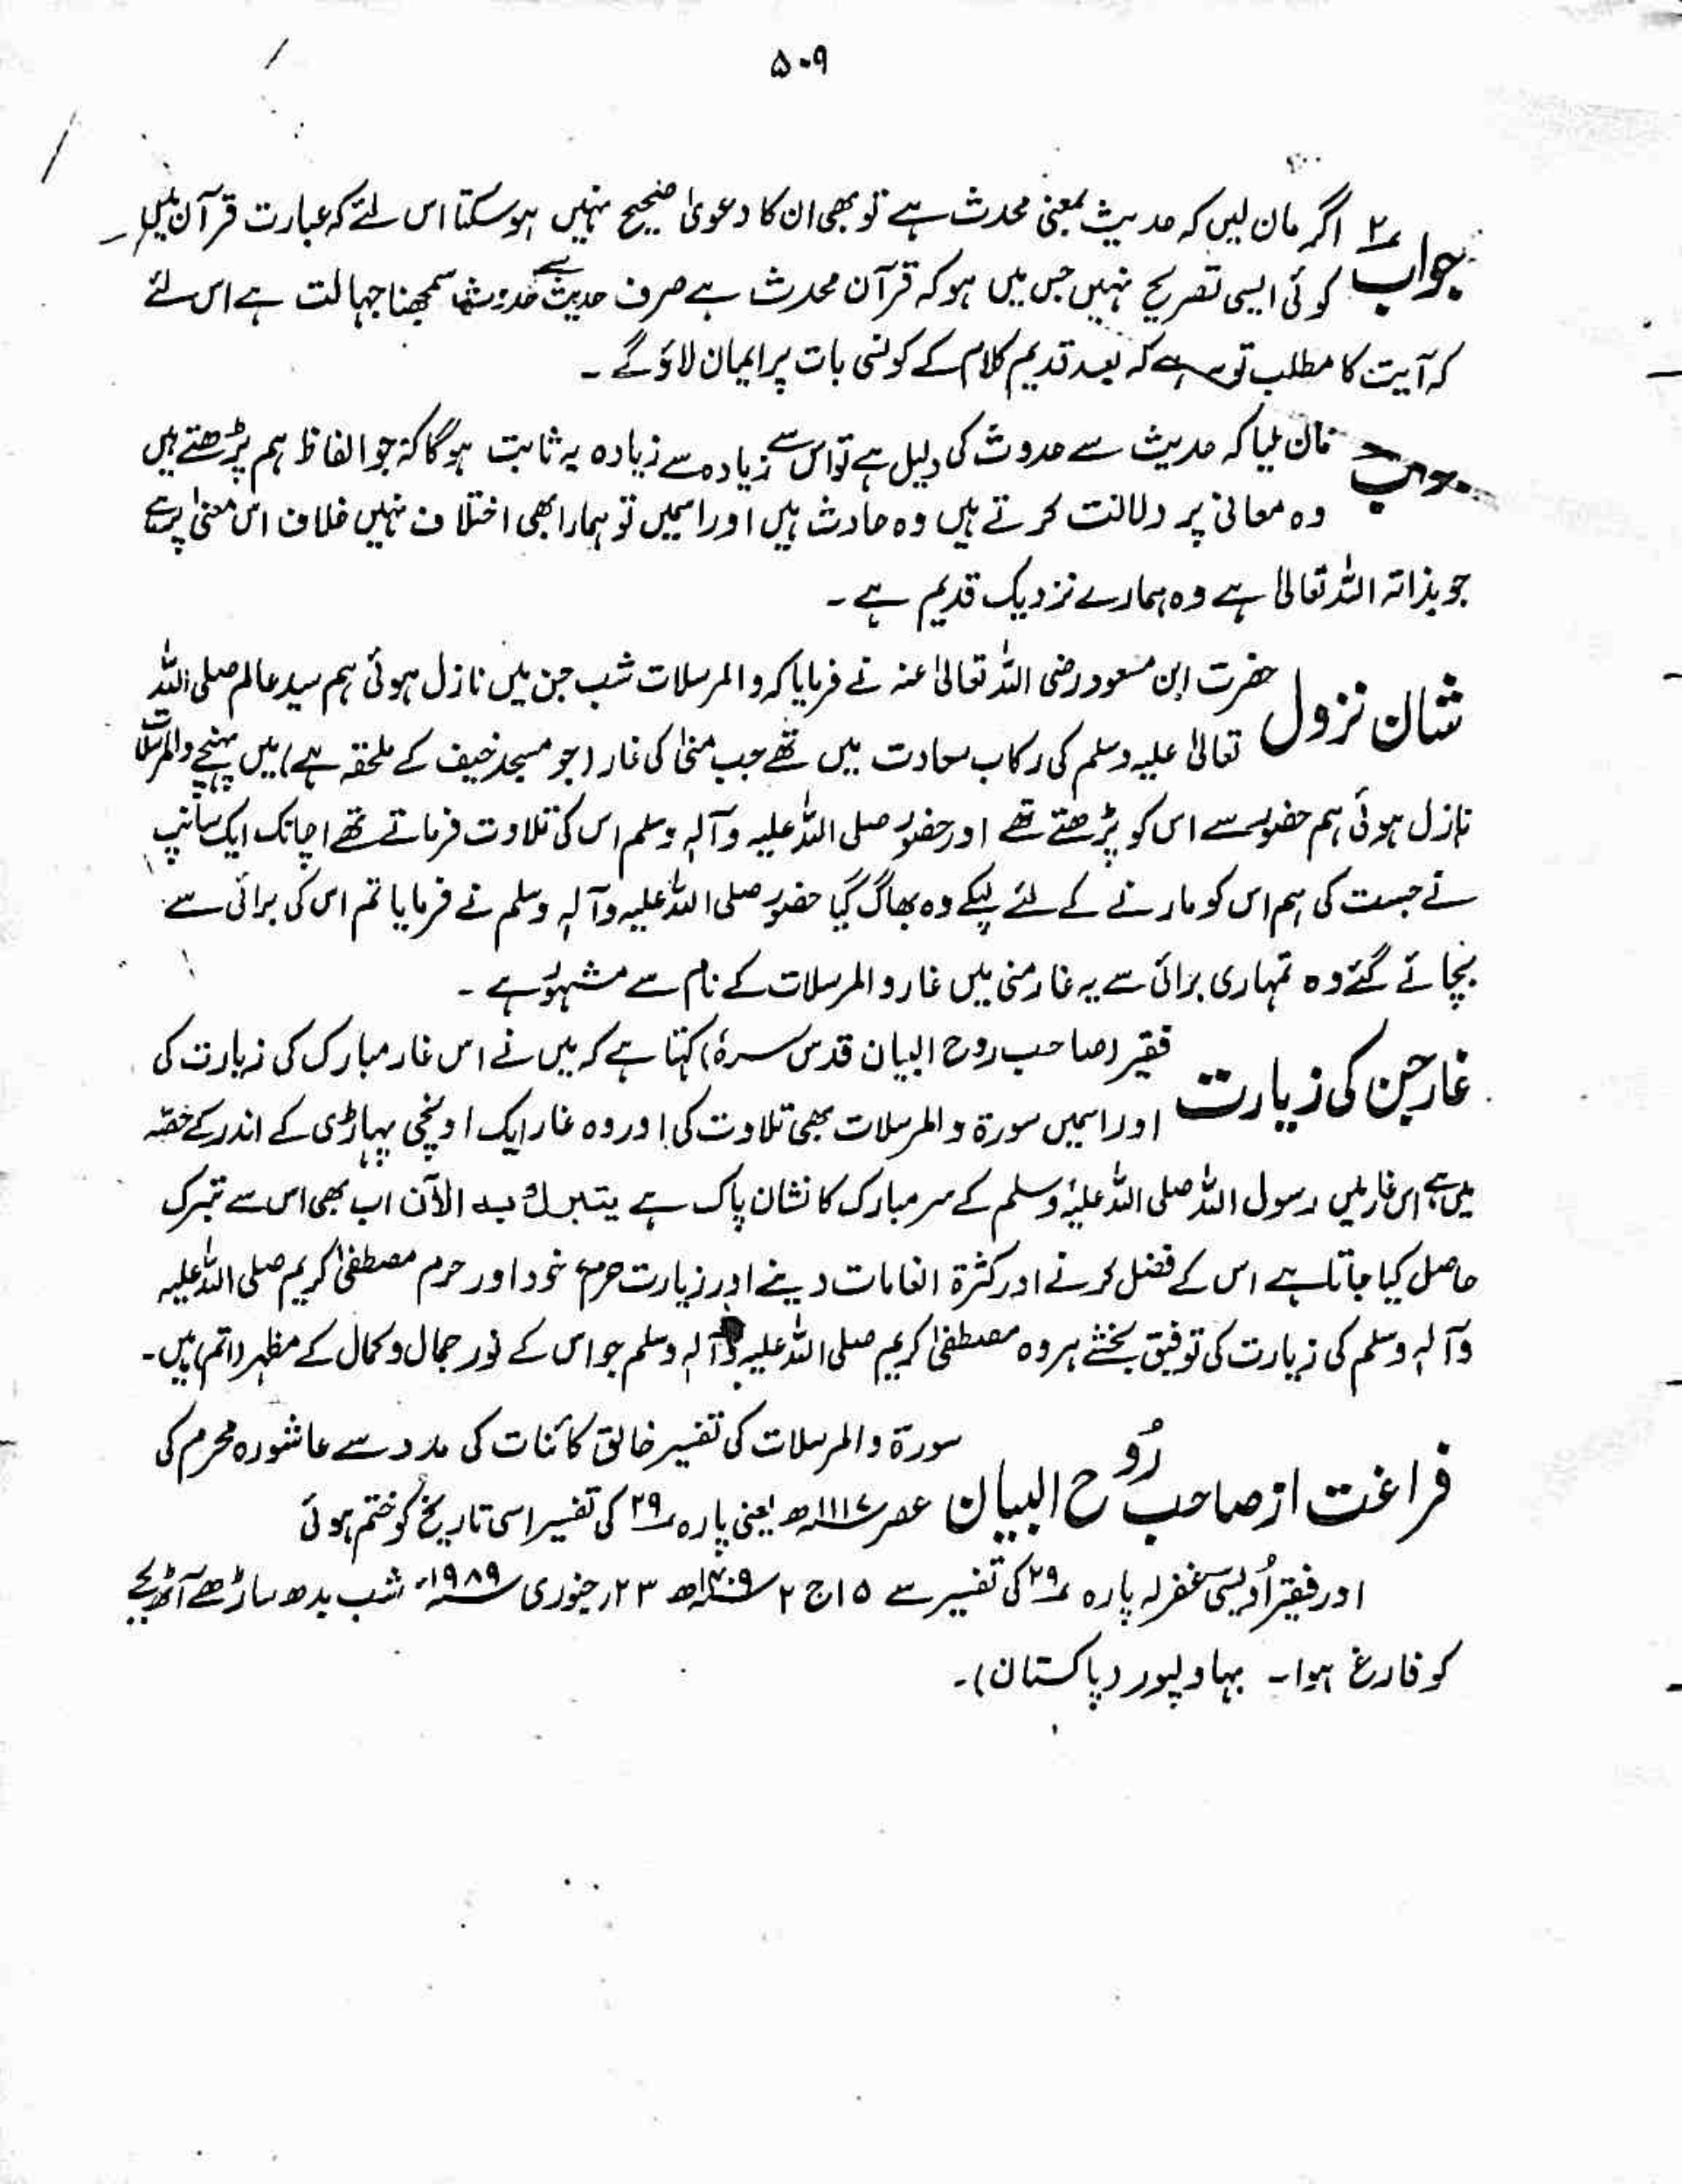 ۵۰۹
جواب ۲ اگر مان لیں کہ حدیث بمعنی محدث ہے تو بھی ان کا دعویٰ صحیح نہیں ہو سکتا اس لئے کہ عبارت قرآن میں
کوئی ایسی تصریح نہیں جس میں ہو کہ قرآن محدث ہے صرف حدیث سے حدوث سمجھنا جہالت ہے اس لئے
کہ آیت کا مطلب تو یہ ہے کہ بعد قدیم کلام کے کونسی بات پر ایمان لاؤ گے ۔
جواب مان لیا کہ حدیث سے حدوث کی دلیل ہے تو اس سے زیادہ سے زیادہ یہ ثابت ہو گا کہ جو الفاظ ہم پڑھتے ہیں
وہ معانی پر دلالت کرتے ہیں وہ حادث ہیں اور اسمیں تو ہمارا بھی اختلاف نہیں خلاف اس معنیٰ پر ہے
جو بذاتہ اللہ تعالیٰ ہے وہ ہمارے نزدیک قدیم ہے ۔
شان نزول حضرت ابن مسعود رضی اللہ تعالیٰ عنہ نے فرمایا کہ والمرسلات شب جن میں نازل ہوئی ہم سید عالم صلی اللہ
تعالیٰ علیہ وسلم کی رکاب سعادت میں تھے جب منیٰ کی غار (جو مسجد خیف کے ملحقہ ہے) میں پہنچے والمرسلات
نازل ہوئی ہم حضور سے اس کو پڑھتے تھے اور حضور صلی اللہ علیہ وآلہٖ وسلم اس کی تلاوت فرماتے تھے اچانک ایک سانپ
نے جست کی ہم اس کو مارنے کے لئے لپکے وہ بھاگ گیا حضور صلی اللہ علیہ وآلہٖ وسلم نے فرمایا تم اس کی برائی سے
بچائے گئے وہ تمہاری برائی سے یہ غار منی میں غار والمرسلات کے نام سے مشہور ہے ۔
غار جن کی زیارت فقیر (صاحب روح البیان قدس سرہٗ) کہتا ہے کہ میں نے اس غار مبارک کی زیارت کی
اور اسمیں سورۃ والمرسلات بھی تلاوت کی اور وہ غار ایک اونچی پہاڑی کے اندر کے حصّہ
میں ہے اس غار میں رسول اللہ صلی اللہ علیہ وسلم کے سر مبارک کا نشان پاک ہے یتبرک بہ الآن اب بھی اس سے تبرک
حاصل کیا جاتا ہے اس کے فضل کرنے اور کثرۃ انعامات دینے اور زیارت حرم خود اور حرم مصطفیٰ کریم صلی اللہ علیہ
وآلہٖ وسلم کی زیارت کی توفیق بخشے ہر وہ مصطفیٰ کریم صلی اللہ علیہ وآلہٖ وسلم جو اس کے نور جمال و کمال کے مظہر (اتم) ہیں۔
فراغت از صاحب رُوح البیان سورۃ والمرسلات کی تفسیر خالق کائنات کی مدد سے عاشورہ محرم کی
عصر ۱۱۱۷ھ یعنی پارہ ۲۹ کی تفسیر اسی تاریخ کو ختم ہوئی
اور فقیر اُویسی غفرلہ پارہ ۲۹ کی تفسیر سے ۱۵ ج ۲ ۱۴۰۹ھ ۲۳ جنوری ۱۹۸۹ء شب بدھ ساڑھے آٹھ بجے
کو فارغ ہوا۔ بہاولپور (پاکستان)۔